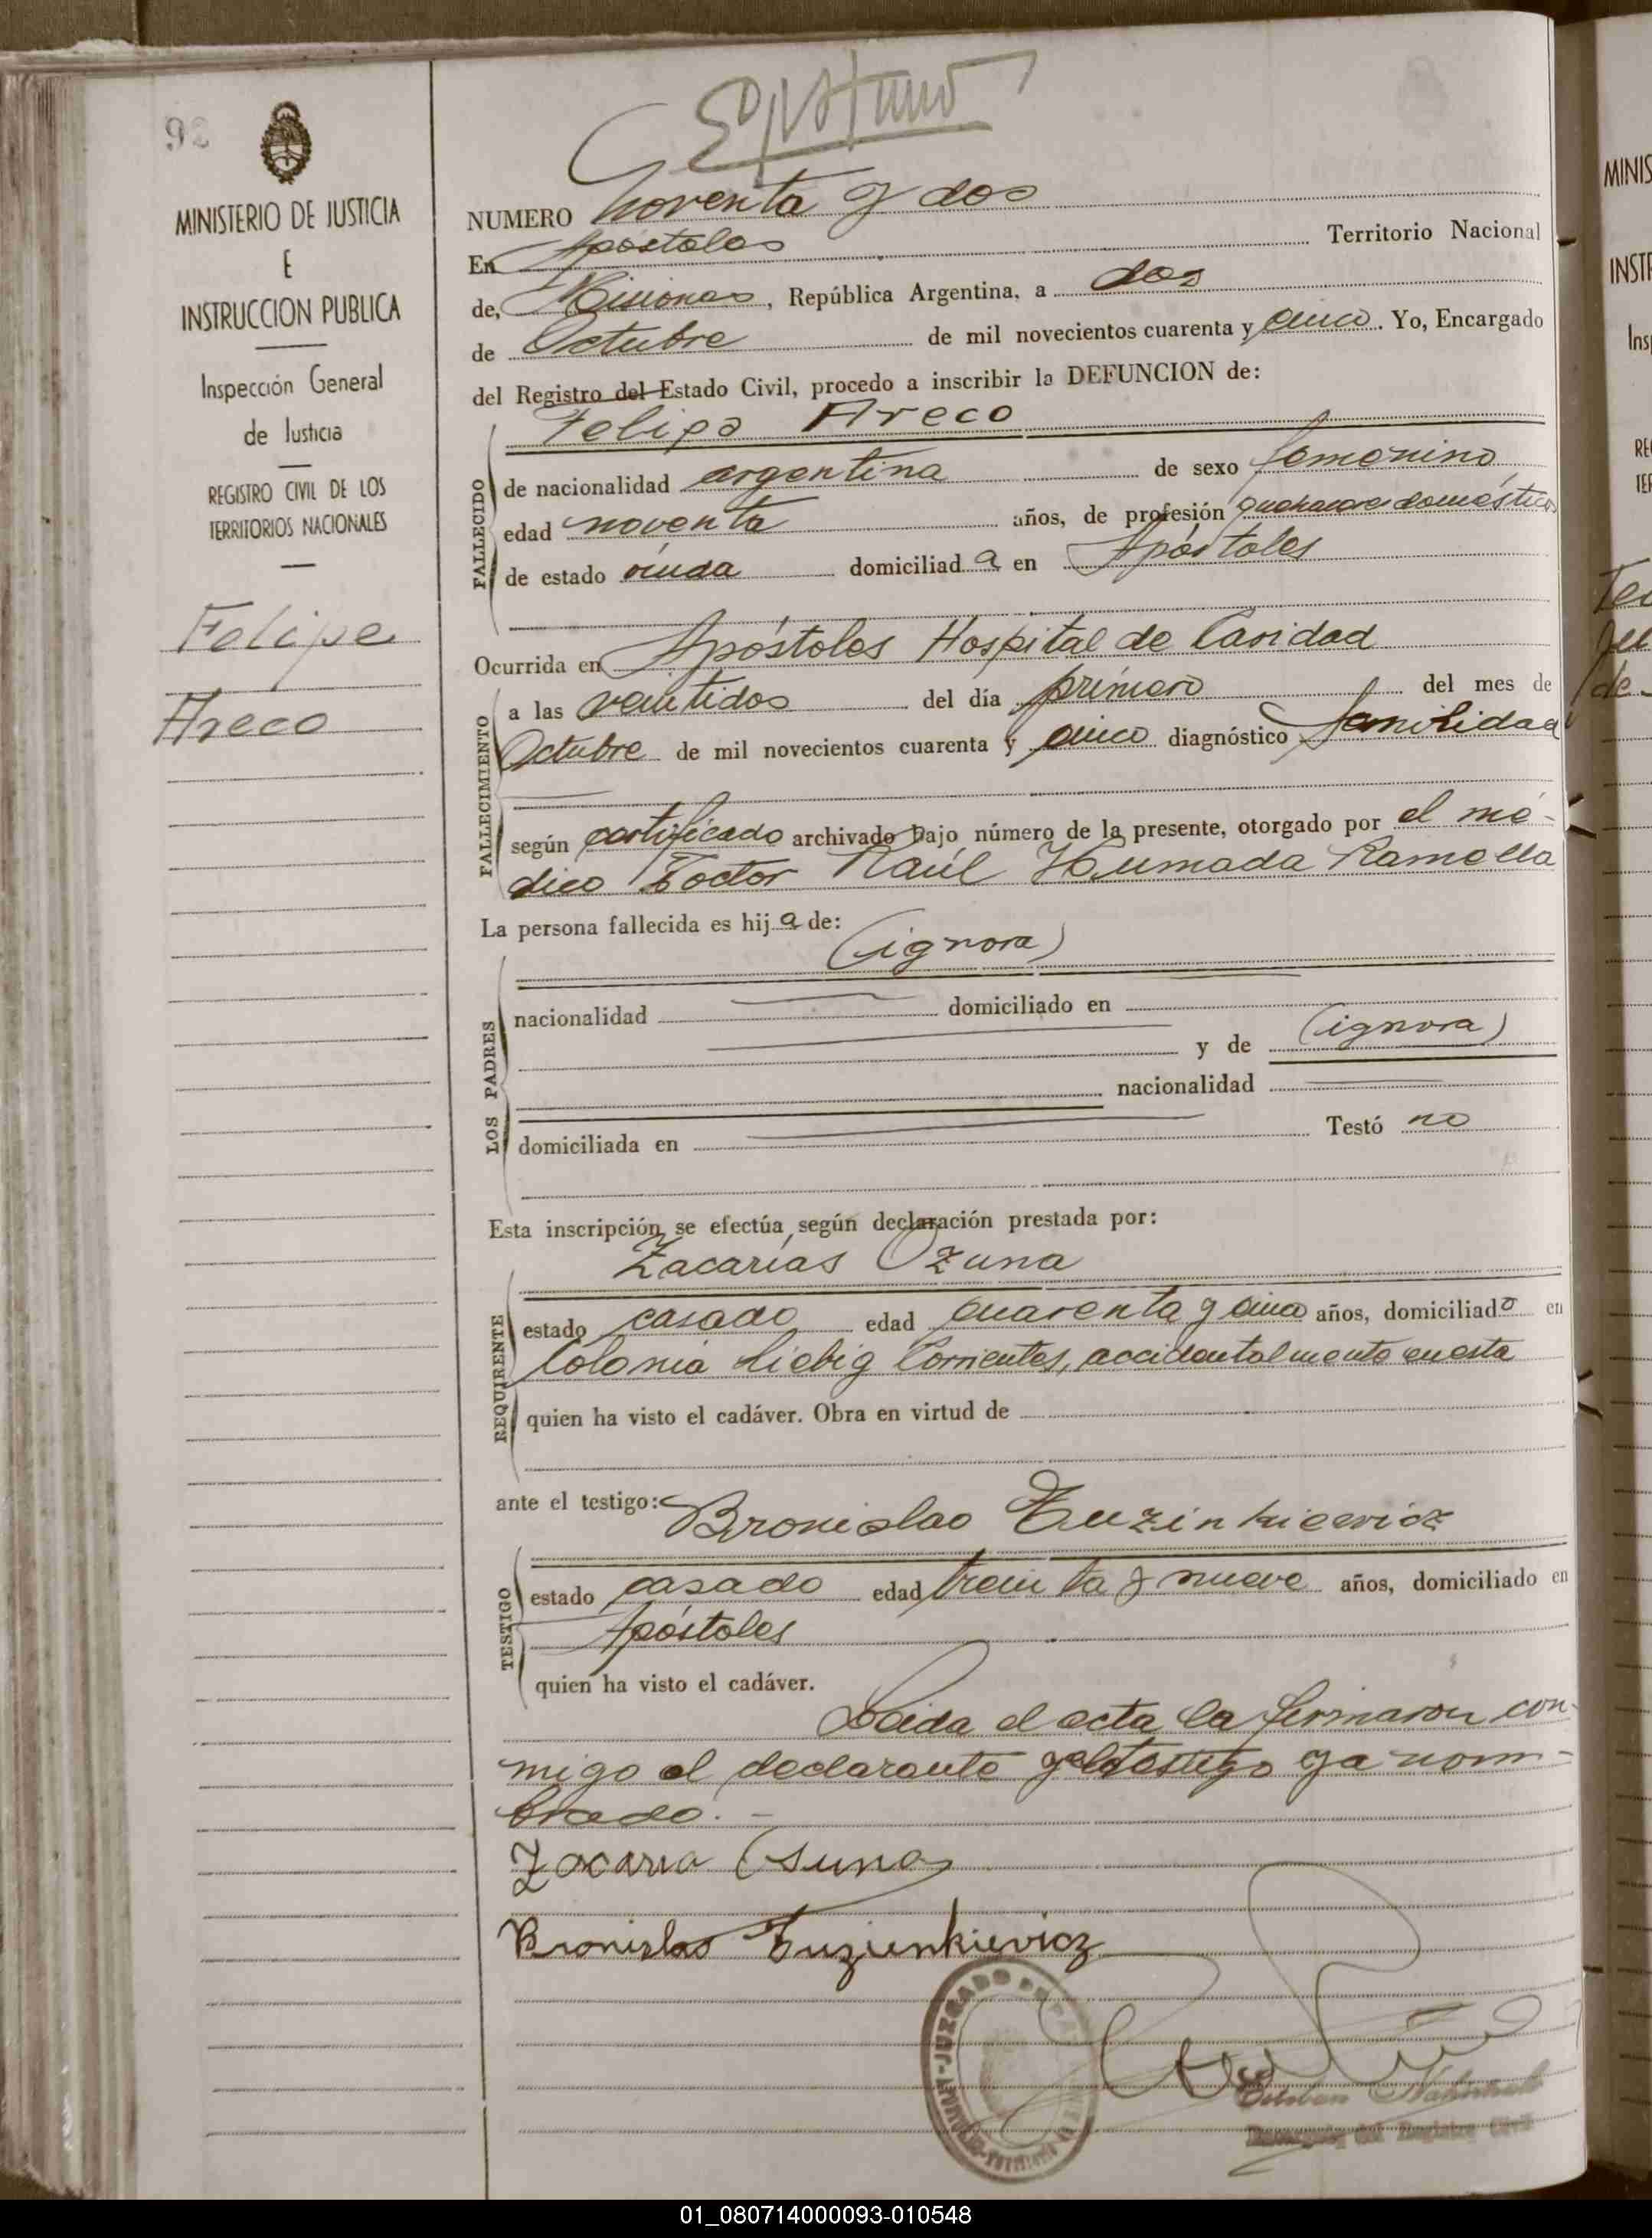 92
MINISTERIO DE JUSTICIA
E
INSTRUCCION PUBLICA
Inspección General
de Justicia
REGISTRO CIVIL DE LOS
TERRITORIOS NACIONALES
Felipe
Areco
NUMERO noventa y dos
En Apóstoles Territorio Nacional
de, Misiones, República Argentina, a dos
de Octubre de mil novecientos cuarenta y cinco. Yo, Encargado
del Registro del Estado Civil, procedo a inscribir la DEFUNCION de:
Felipa Areco
FALLECIDO
de nacionalidad argentina de sexo femenino
edad noventa años, de profesión quehacere doméstico
de estado viuda domiciliad a en Apóstoles
Ocurrida en Apóstoles Hospital de Caridad
FALLECIMIENTO
a las veintidos del día primero del mes de
Octubre de mil novecientos cuarenta y cinco diagnóstico
según certificado archivado bajo número de la presente, otorgado por el mé-
dico Doctor Raúl Humada Ramella
La persona fallecida es hij a de:
(ignora)
LOS PADRES
nacionalidad domiciliado en
y de (ignora)
nacionalidad
domiciliada en Testó no
Esta inscripción se efectúa según declaración prestada por:
Zacarías Ozuna
REQUIRENTE
estado casado edad cuarenta y cinco años, domiciliado en
Colonia Liebig Corrientes, accidentalmente en esta
quien ha visto el cadáver. Obra en virtud de
ante el testigo: Bronislao Tuzinkiewicz
TESTIGO
estado casado edad treinta y nueve años, domiciliado en
Apóstoles
quien ha visto el cadáver.
Leida el acta la firmaron con-
migo el declarante y el testigo ya nom-
brado. -
Zacaria Osuna
Bronislao Tuzienkievicz
JUZGADO DE PAZ
Esteban
Encargado del Registro Civil
01_080714000093-010548